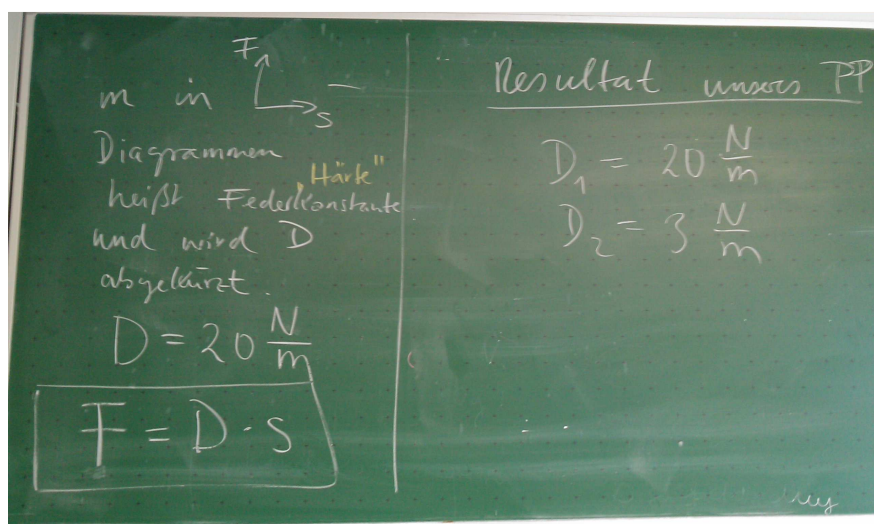 m in F s -
Diagrammen
heißt Federkonstante „Härte"
und wird D
abgekürzt.
D = 20 N/m
F = D · s
Resultat unsers PP
D₁ = 20 N/m
D₂ = 3 N/m